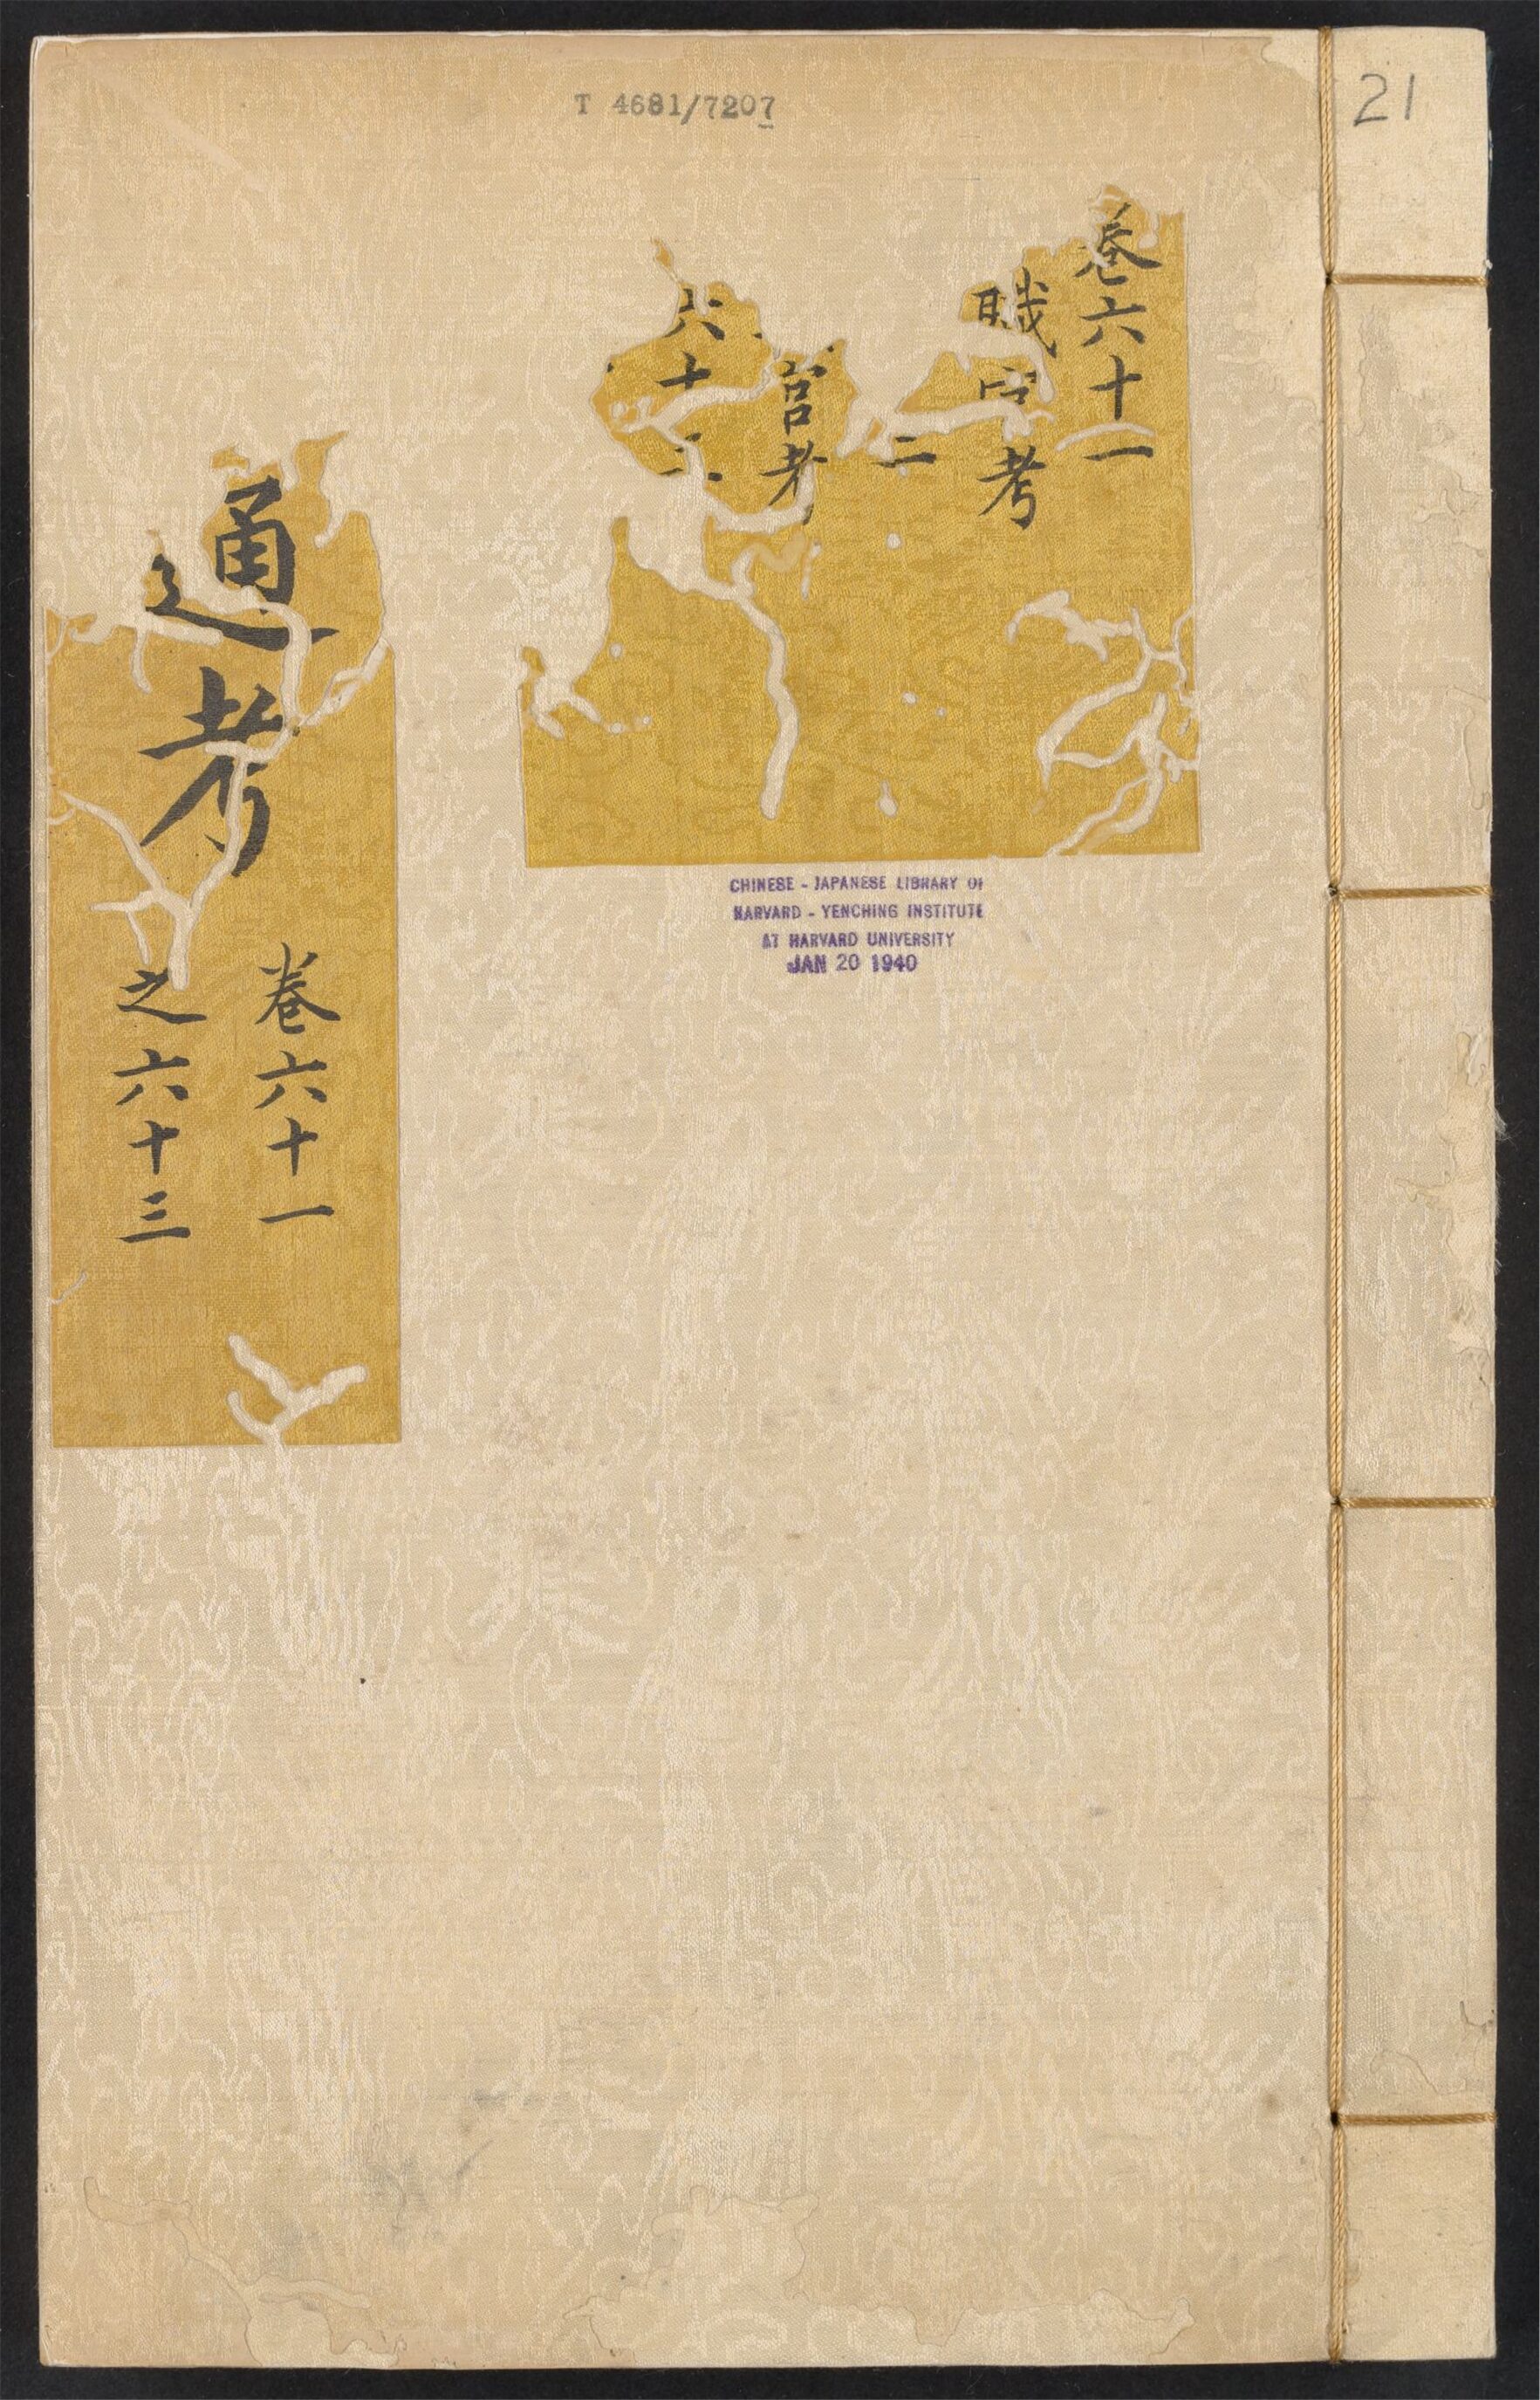 T 4681/7207
21
卷六十一
職官考
二
官考
六十
通考
卷六十一
之六十三
CHINESE - JAPANESE LIBRARY OF
HARVARD - YENCHING INSTITUTE
AT HARVARD UNIVERSITY
JAN 20 1940